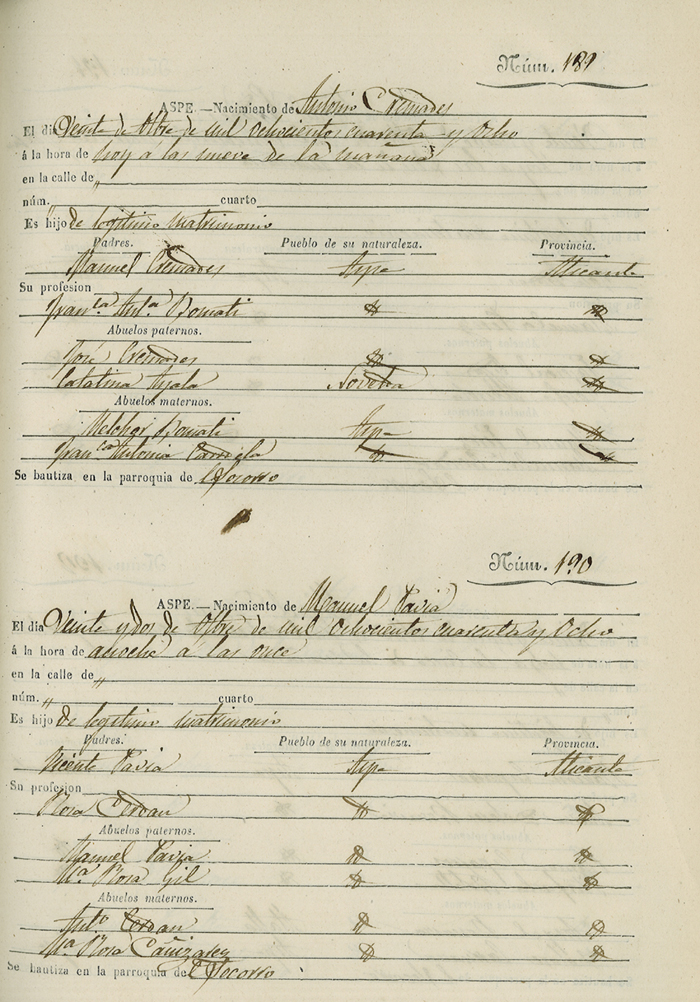 Núm. 189
ASPE.—Nacimiento de Antonio Cremades
El día Veinte de Obre de mil ochocientos cuarenta y ocho
á la hora de hoy á las nueve de la mañana
en la calle de "
núm. " cuarto
Es hijo de legitimo matrimonio
Padres. Pueblo de su naturaleza. Provincia.
Manuel Cremades Aspe Alicante
Su profesion
Fran.ca Ant.a Bomati
Abuelos paternos.
José Cremades
Catalina Ayala Novelda
Abuelos maternos.
Melchor Bomati Aspe
Fran.ca Antonia
Se bautiza en la parroquia de El Socorro
Núm. 190
ASPE.—Nacimiento de Manuel Pavia
El día Veinte y dos de Obre de mil ochocientos cuarenta y ocho
á la hora de anoche a las once
en la calle de "
núm. " cuarto
Es hijo de legitimo matrimonio
Padres. Pueblo de su naturaleza. Provincia.
Vicente Pavia Aspe Alicante
Su profesion
Rosa Cerdan
Abuelos paternos.
Manuel Pavia
M.a Rosa Gil
Abuelos maternos.
Ant.o Cerdan
M.a Rosa Cañizares
Se bautiza en la parroquia de El Socorro